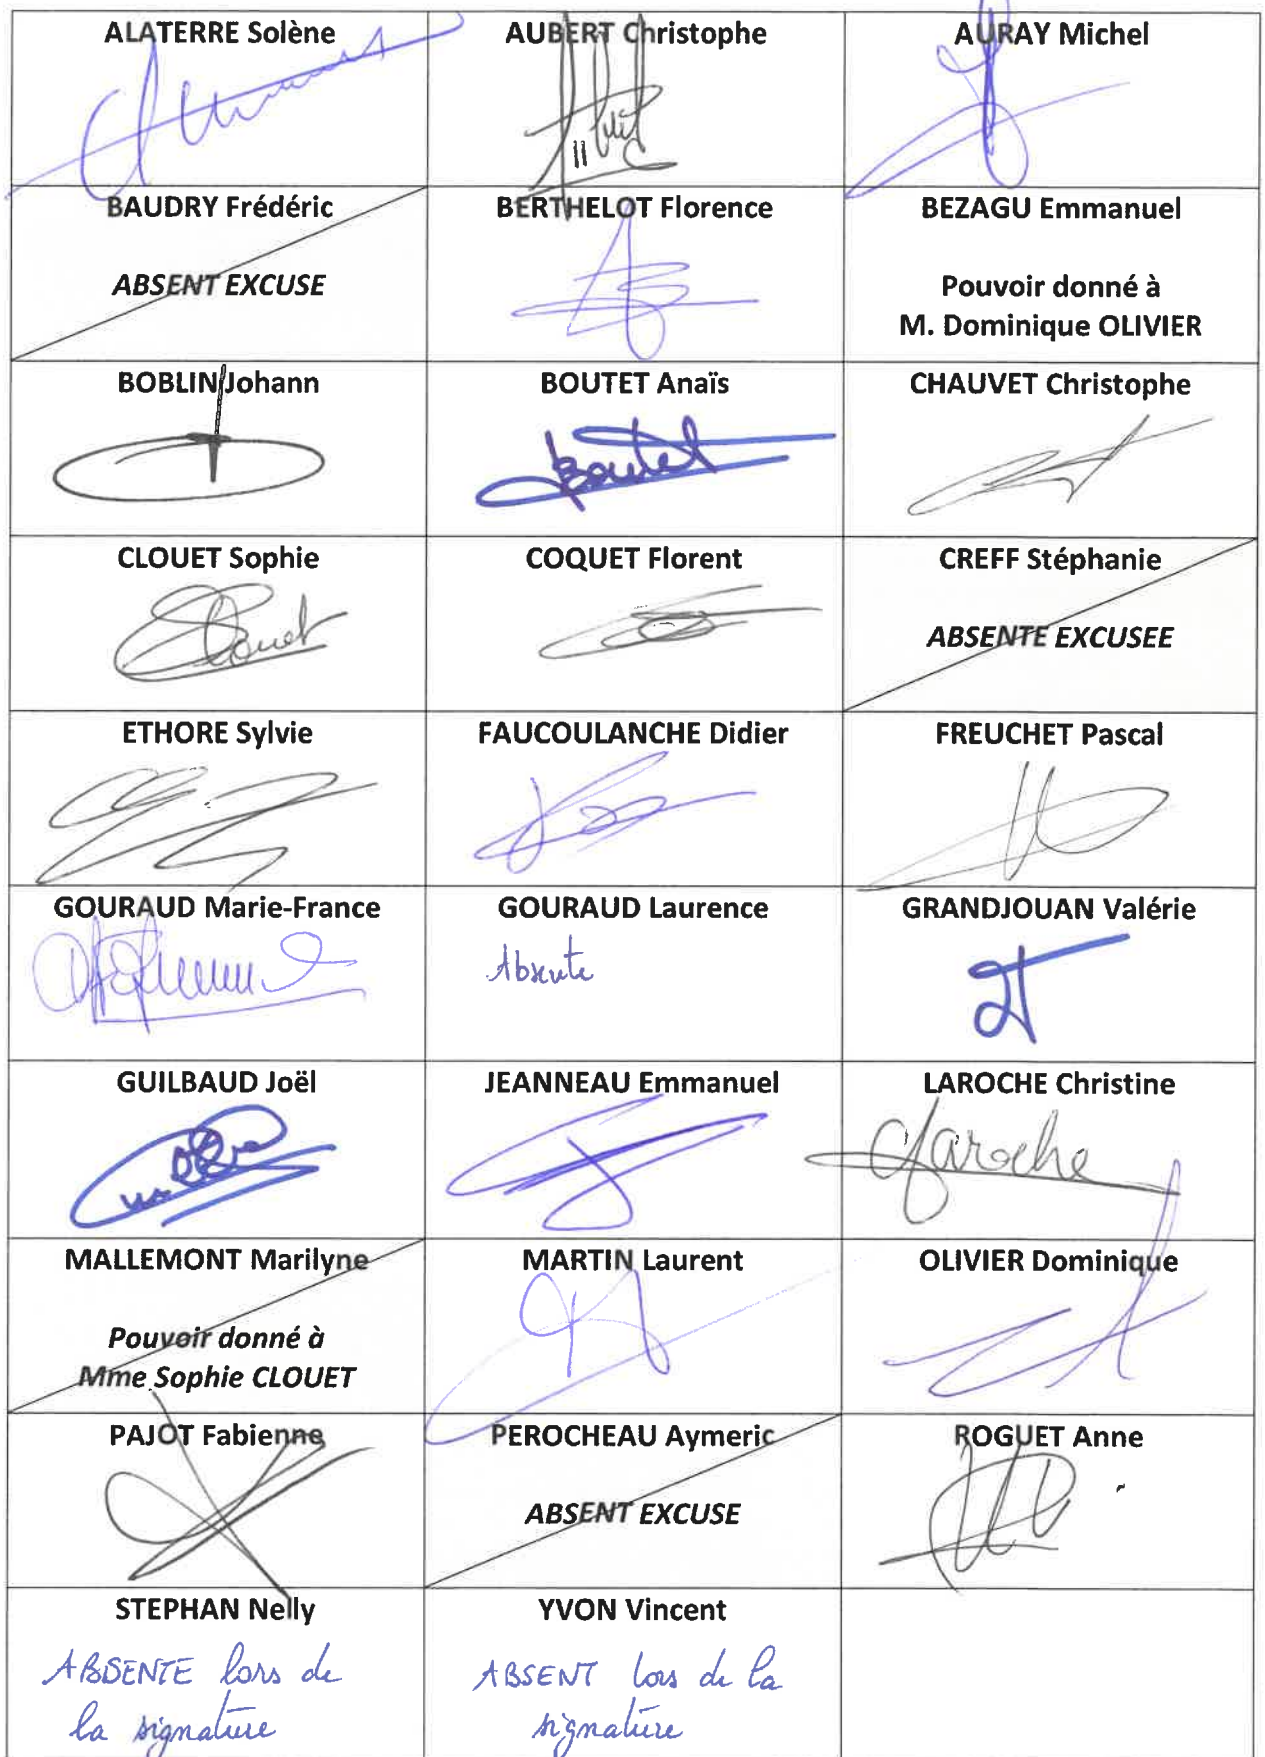 ALATERRE Solène
AUBERT Christophe
AURAY Michel
BAUDRY Frédéric
ABSENT EXCUSE
BERTHELOT Florence
BEZAGU Emmanuel
Pouvoir donné à
M. Dominique OLIVIER
BOBLIN Johann
BOUTET Anaïs
Boutet
CHAUVET Christophe
CLOUET Sophie
Clouet
COQUET Florent
CREFF Stéphanie
ABSENTE EXCUSEE
ETHORE Sylvie
FAUCOULANCHE Didier
FREUCHET Pascal
GOURAUD Marie-France
GOURAUD Laurence
Absente
GRANDJOUAN Valérie
GUILBAUD Joël
JEANNEAU Emmanuel
LAROCHE Christine
Claroche
MALLEMONT Marilyne
Pouvoir donné à
Mme Sophie CLOUET
MARTIN Laurent
OLIVIER Dominique
PAJOT Fabienne
PEROCHEAU Aymeric
ABSENT EXCUSE
ROGUET Anne
STEPHAN Nelly
ABSENTE lors de
la signature
YVON Vincent
ABSENT lors de la
signature